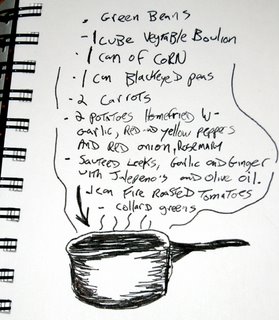 . Green Beans
- 1 Cube Vegtable Boulion
· 1 can of CORN
· 1 can Blackeyed peas
- 2 Carrots
- 2 potatoes Homefried w-
garlic, Red and yellow peppers
AND Red onion, Rosemary
- Sauteed Leeks, Garlic and Ginger
with Jalepeno's and Olive oil.
- 1 can Fire Roasted Tomatoes
- collard greens